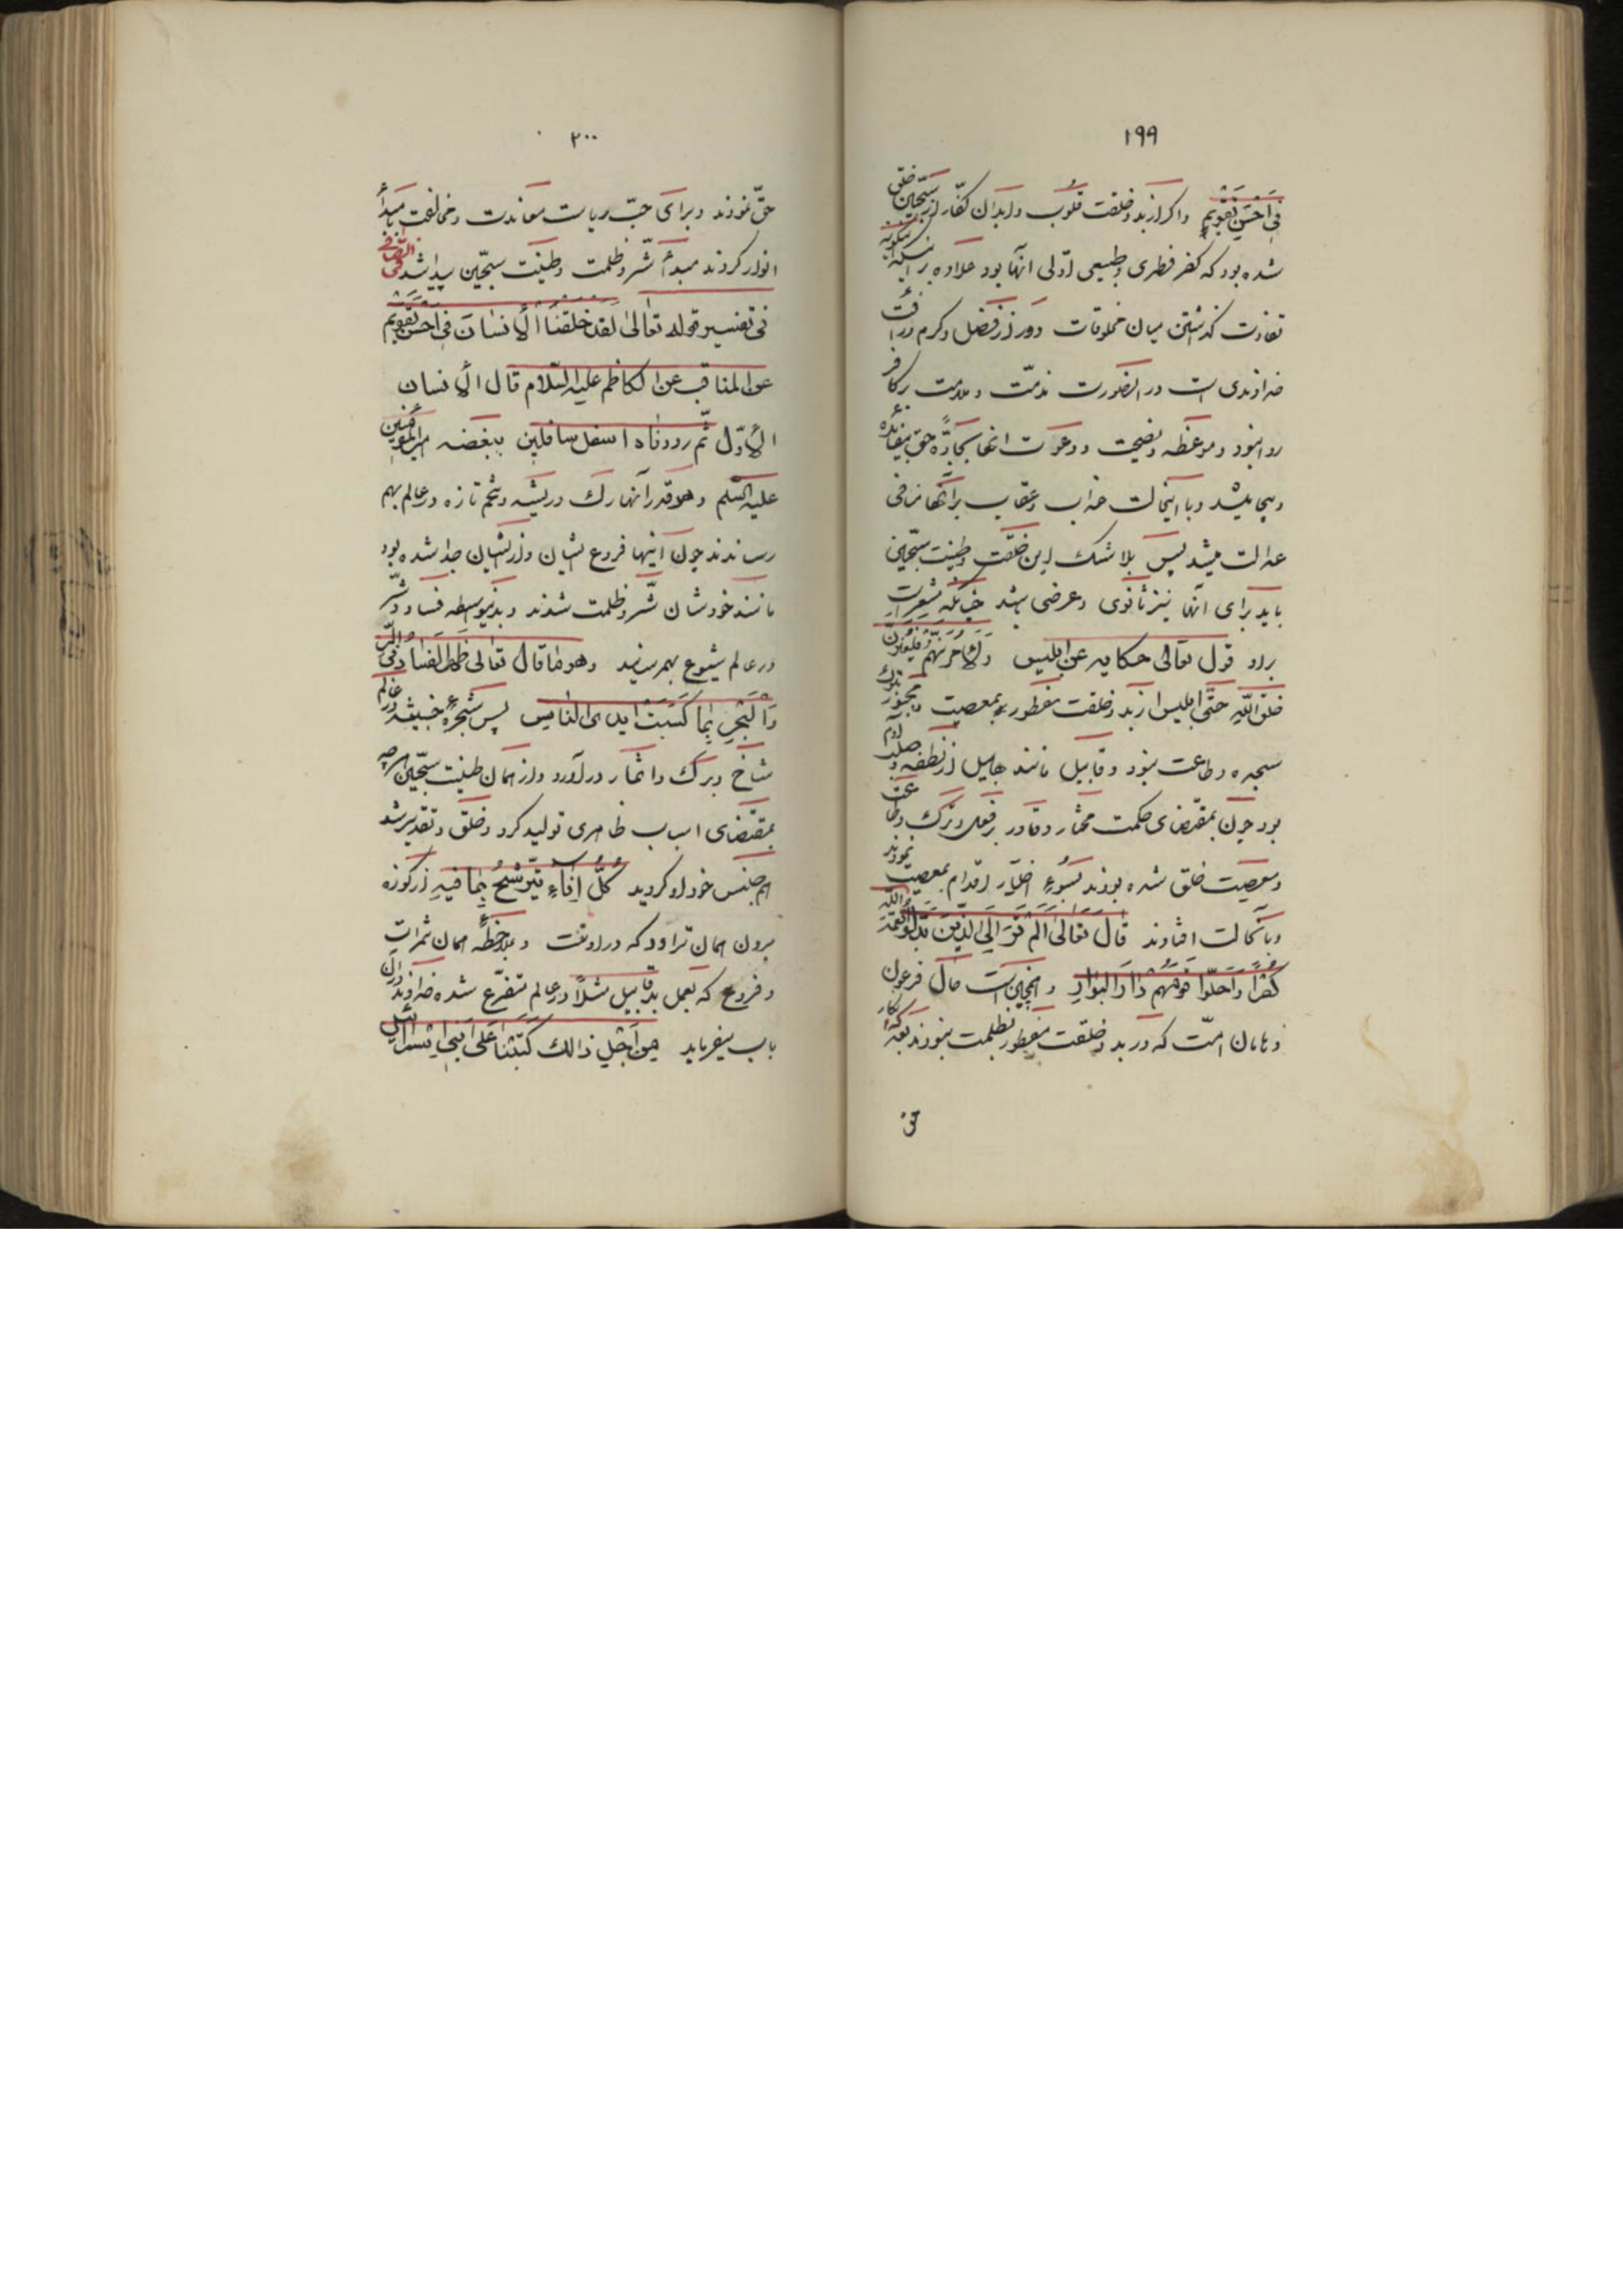 ١٩٩
فِی اَحْسَنِ تَقْویمٍ واگر از بدو خلقت قلوب وابدان کفّار از سجّین خلق
شده بود که کفر فطری وطبیعی اوّلی آنها بود علاوه بر اینکه اینگونه
تفاوت گذاشتن میان مخلوقات دور از فضل وکرم ورأفت
خداوندی است در اینصورت مذمّت وملامت بر کافر
روا نبود وموعظه ونصیحت ودعوت انها بجادّه حق بیفائده
وبیجا میشد وبا اینحالت عذاب وعقاب برای آنها منافی
عدالت میشد پس بلا شک این خلقت وطینت سجّینی
باید برای آنها نیز ثانوی وعرضی باشد چنانکه مشعر است
براو قول تعالی حکایه عن ابلیس وَلَآمُرَنَّهُم فَلَیُغَیِّرُنَّ
خلق اللّه حتّی ابلیس از بدو خلقت مفطور بمعصیت ومجبور بترک
سجده وطاعت نبود وقابیل مانند هابیل از نطفه وصلب آدم
بود چون بمقتضای حکمت مختار وقادر بر فعل وترک وطاعت
ومعصیت خلق شده بودند بسوء اختیار اقدام بمعصیت نمودند
وبآنحالت افتادند قال تعالی اَلَم تَرَ اِلَی الَّذینَ بَدَّلُوا نِعْمَةَ اللّه
کُفْراً وَاَحَلّوا قَومَهُم دارَ البَوارِ وهمچنین است حال فرعون
وهامان امّت که در بدو خلقت مفطور بظلمت نبودند بعد انکار
حق
٢٠٠
حقّ نمودند وبرای حبّ ریاست معاندت ومخالفت با مبدأ
انوار کردند مبدأ شرّ وظلمت وطینت سجّین پیدا شد فی الصّافی
فی تفسیر قوله تعالیٰ لقد خلقنا الأنسان فی احسن تقویم
عن المناقب عن الکاظم علیه السّلام قال الأنسان
الأوّل ثمّ رددناه اسفل سافلین ببغضه امیر المؤمنین
علیه السلم وهر قدر آنها رگ وریشه وتخم تازه در عالم بهم
رساندند چون آنها فروع ایشان واز ایشان جدا شده بود
مانند خودشان شرّ وظلمت شدند وبدینواسطه فساد وشرّ
در عالم شیوع بهمرسانید وهو ما قال تعالی ظَهَرَ الفَسادُ فی البَرِّ
وَالْبَحْرِ بِما کَسَبَتْ ایدی الناس پس شجرهٔ خبیثه در عالم
شاخ وبرگ واثمار در آورد واز همان طینت سجّین هر چه
بمقتضای اسباب ظاهری تولید کرد وخلق وتقدیر شد
هم جنس خود او گردید کُلُّ اِناءٍ یَتَرَشَّحُ بِما فیهِ از کوزه
برون همان تراود که در اوست وبملاحظهٔ همان ثمرات
وفروع که بعمل بد قابیل مثلاً در عالم متفرّع شده خداوند در آن
باب میفرماید مِن اَجْلِ ذالِكَ کَتَبْنا عَلی بَنی اِسرائیل